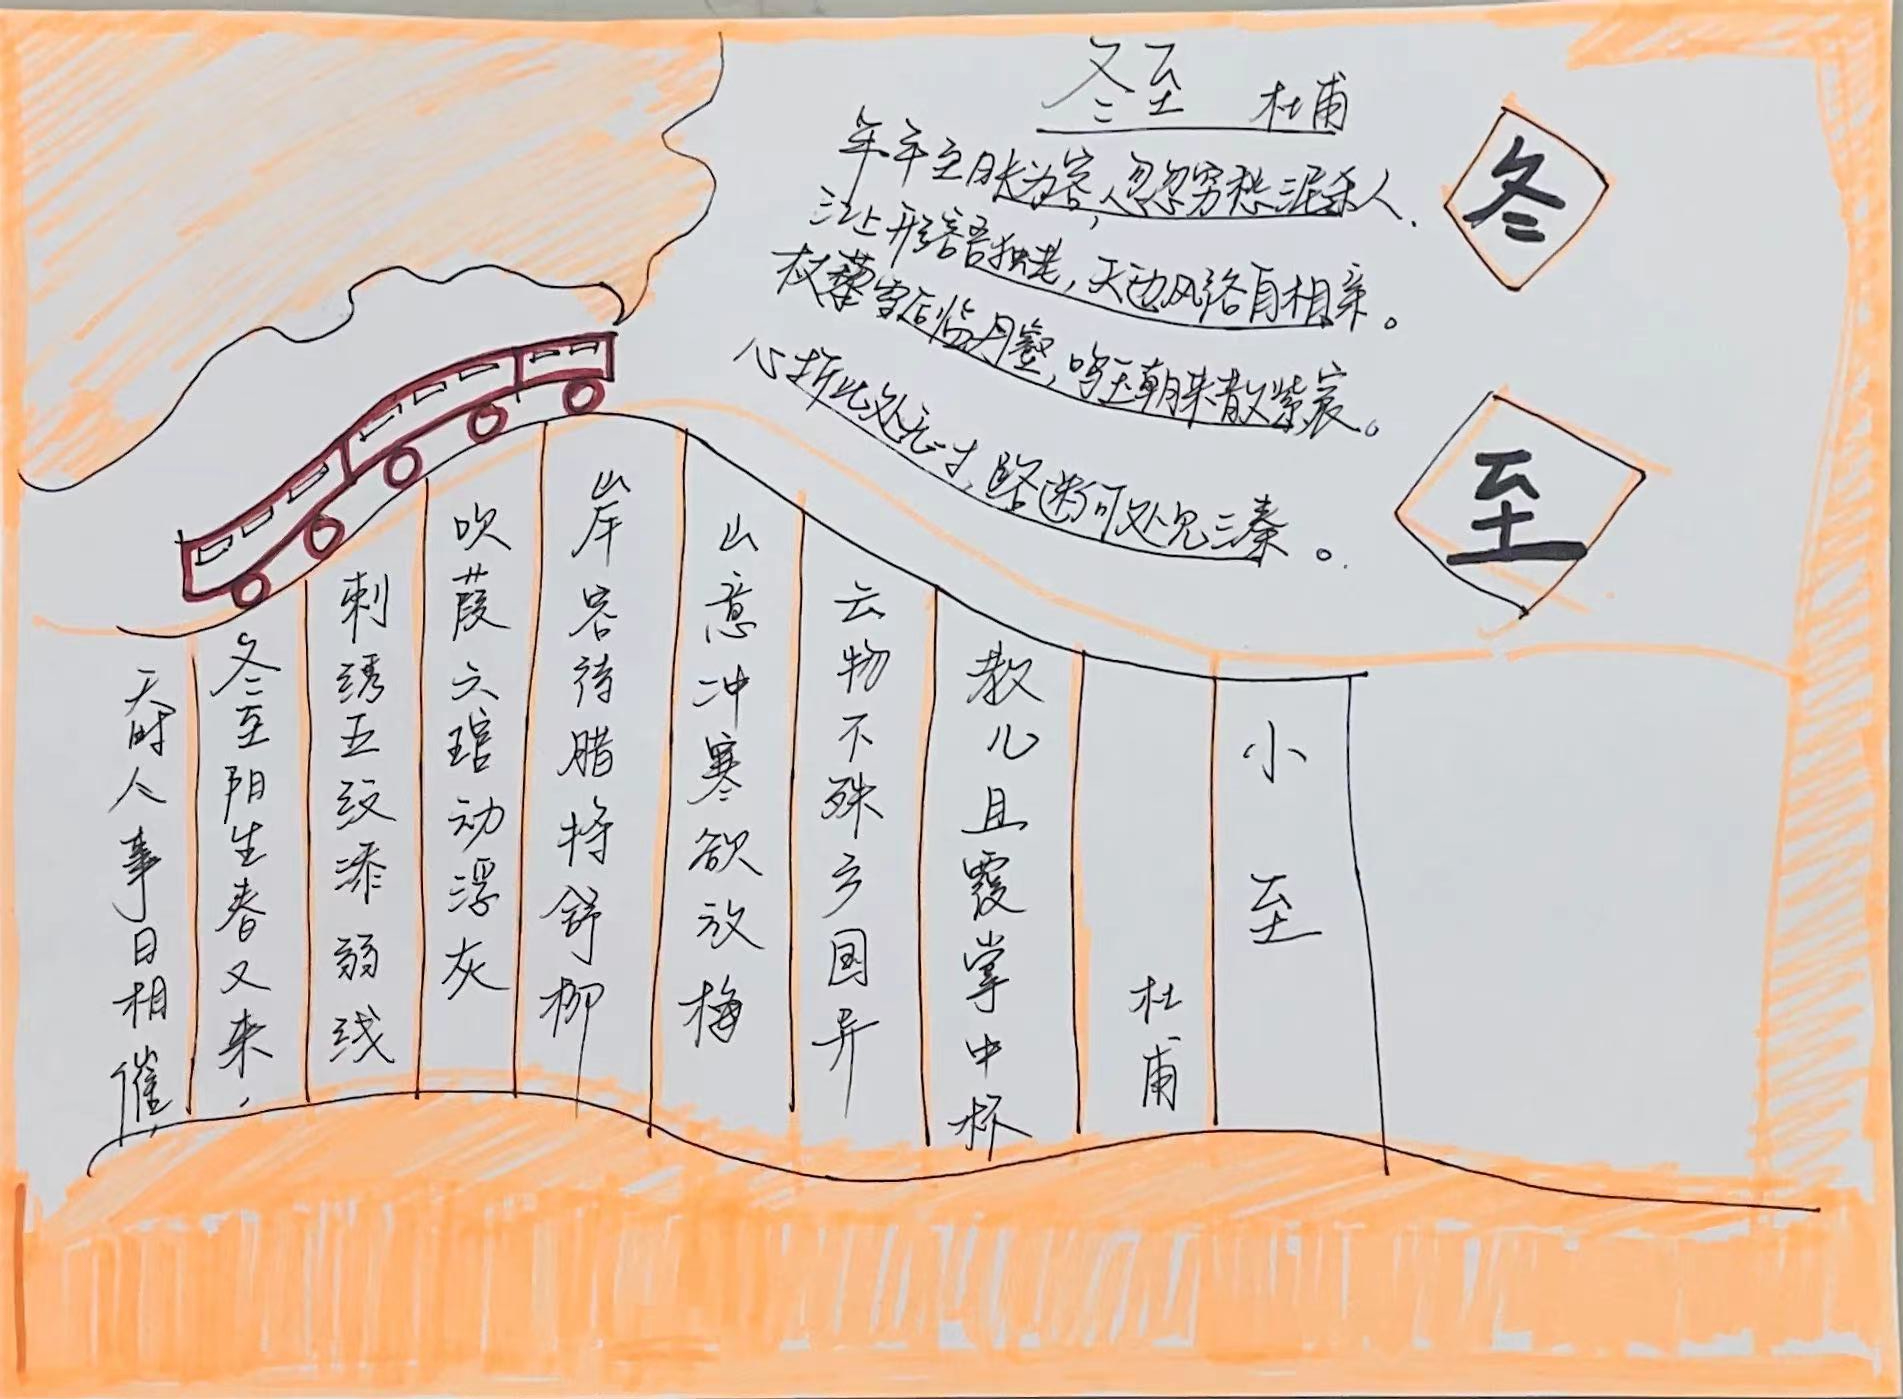 冬至 杜甫
年年至日长为客,忽忽穷愁泥杀人.
江上形容吾独老,天边风俗自相亲。
杖藜雪后临丹壑,鸣玉朝来散紫宸。
心折此处无一寸,路迷何处见三秦。
冬
至
小至
杜甫
教儿且覆掌中杯
云物不殊乡国异
山意冲寒欲放梅
岸容待腊将舒柳
吹葭六琯动浮灰
刺绣五纹添弱线
冬至阳生春又来,
天时人事日相催,